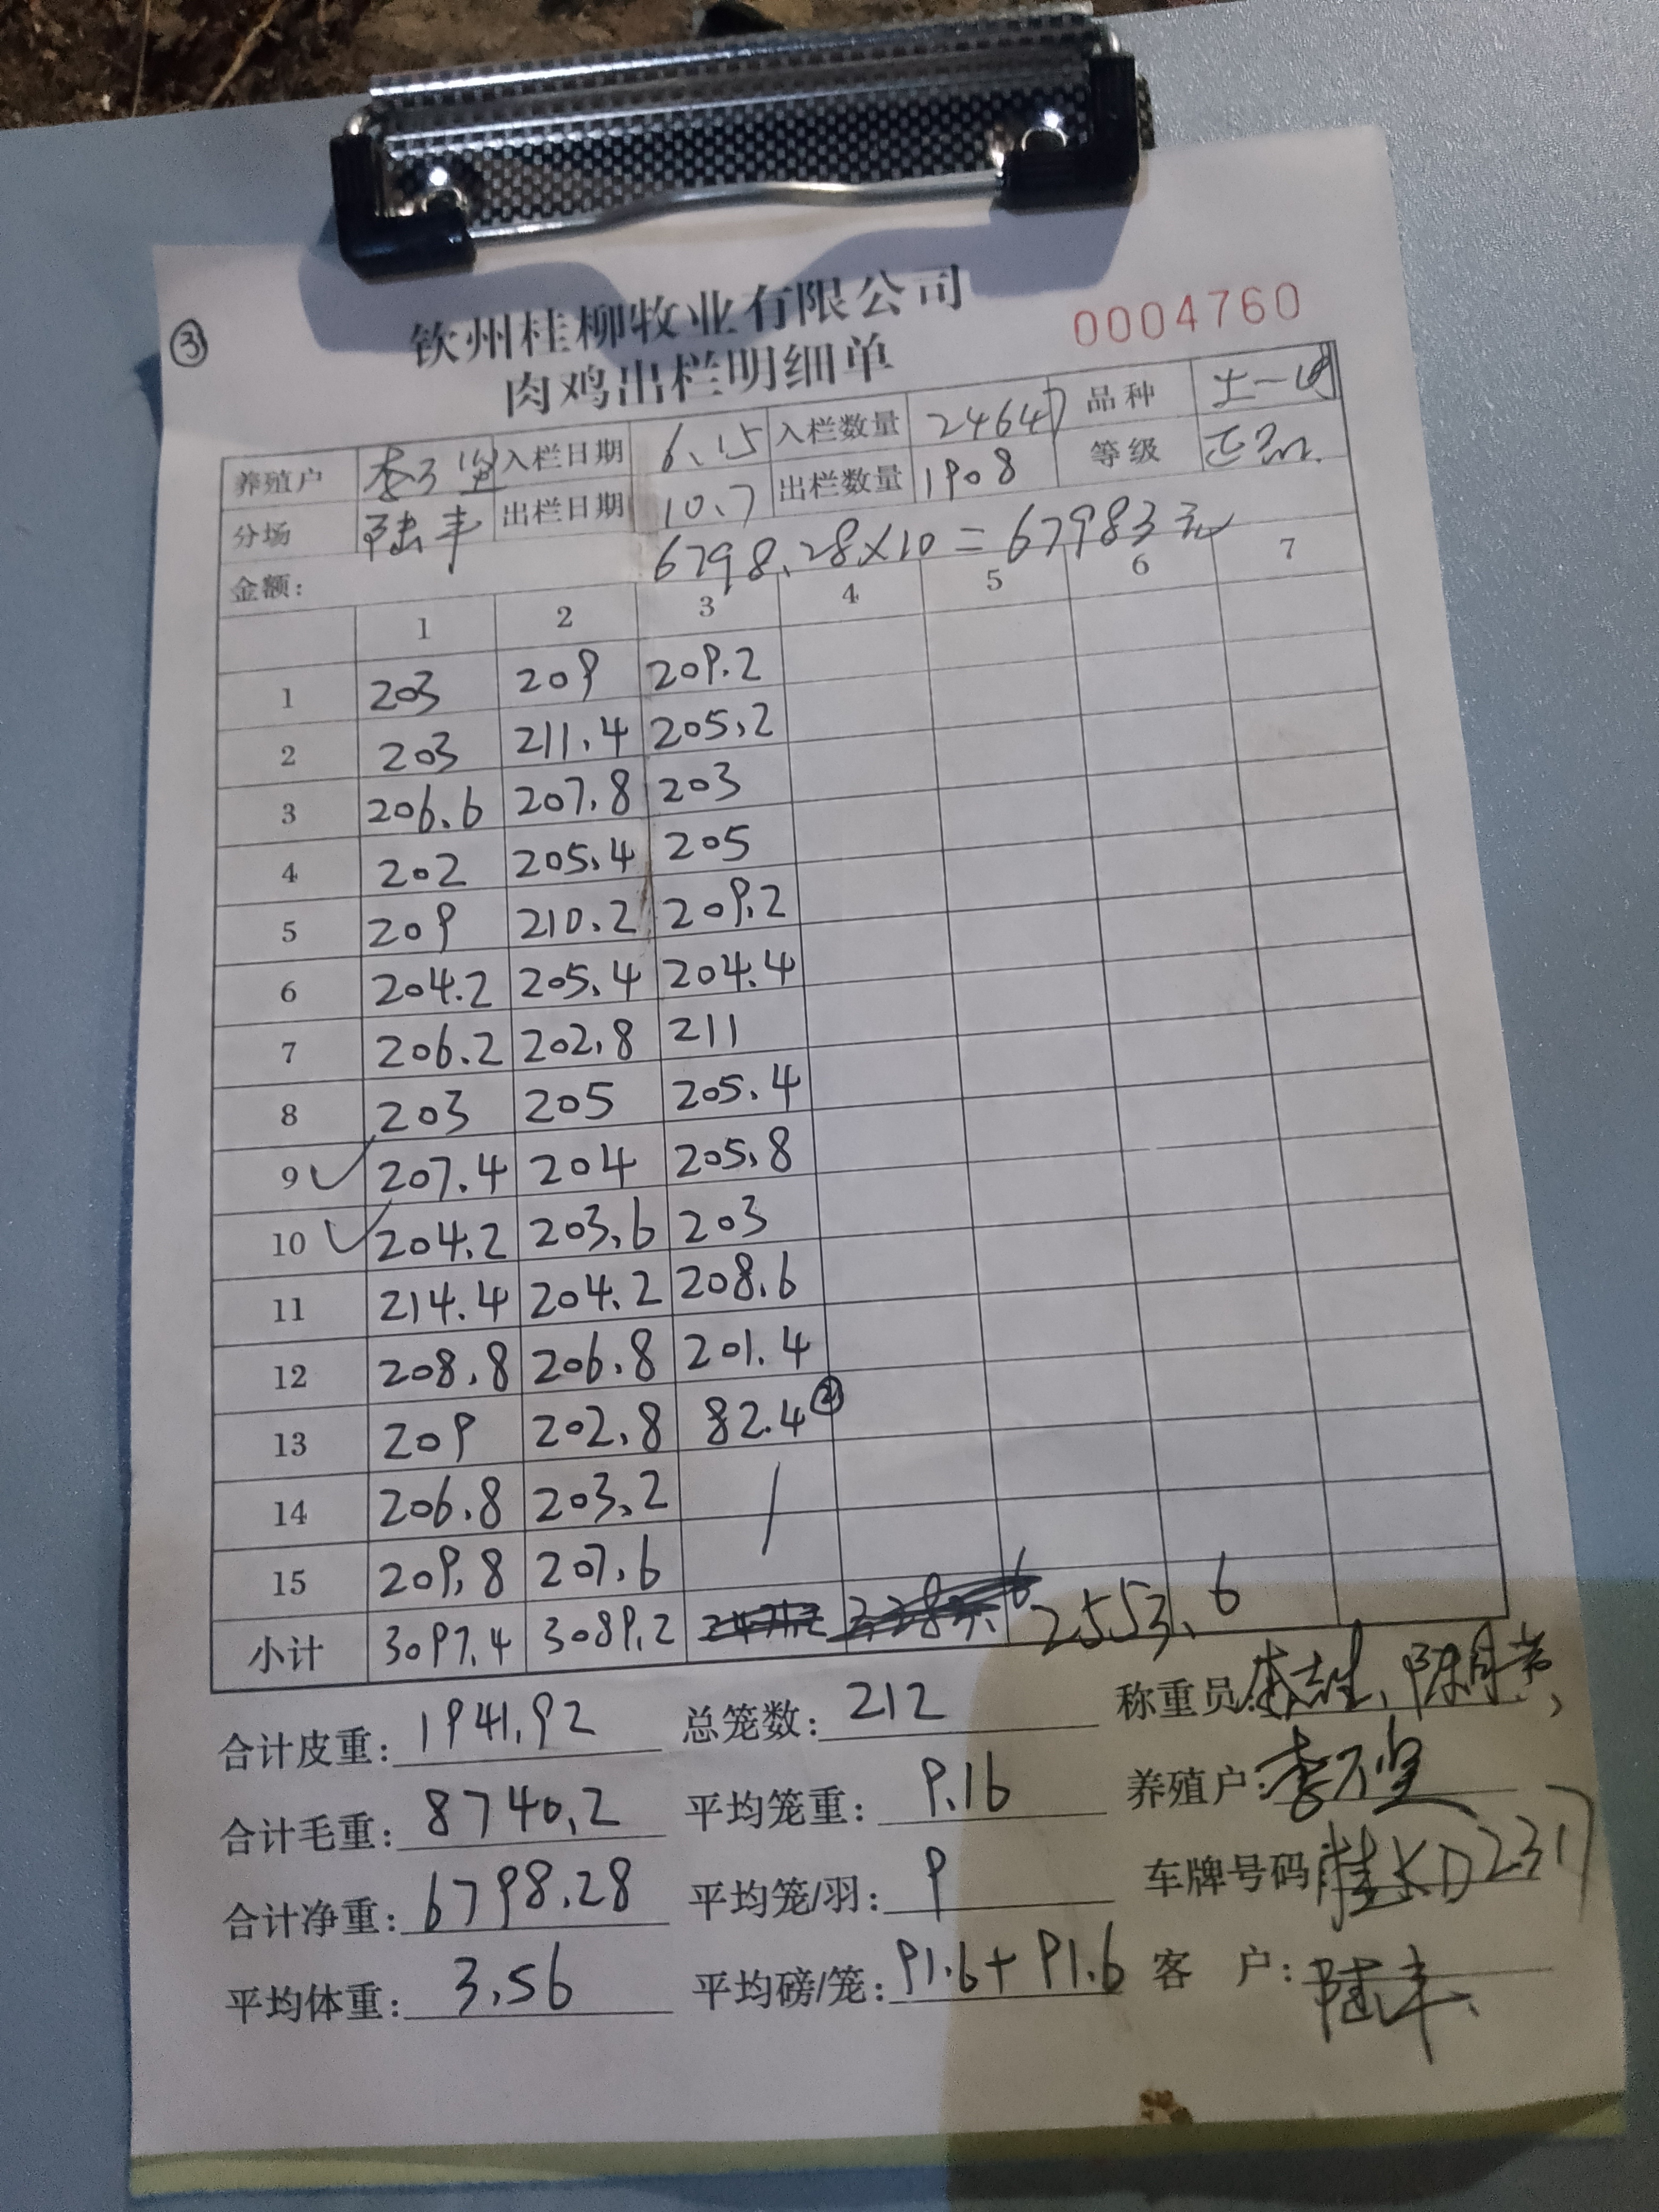 ③
钦州桂柳牧业有限公司
肉鸡出栏明细单
0004760
养殖户 入栏日期 6.15 入栏数量 24647 品种 土一
分场 陆丰 出栏日期 10.7 出栏数量 1908 等级 正品
金额: 6798.28×10=67983元
1 2 3 4 5 6 7
1 203 209 209.2
2 203 211.4 205.2
3 206.6 207.8 203
4 202 205.4 205
5 209 210.2 209.2
6 204.2 205.4 204.4
7 206.2 202.8 211
8 203 205 205.4
9 207.4 204 205.8
10 204.2 203.6 203
11 214.4 204.2 208.6
12 208.8 206.8 201.4
13 209 202.8 82.4 ②
14 206.8 203.2
15 209.8 207.6
小计 3097.4 3089.2 2553.6
合计皮重: 1941.92 总笼数: 212 称重员
合计毛重: 8740.2 平均笼重: 9.16 养殖户:
合计净重: 6798.28 平均笼/羽: 9 车牌号码 D2317
平均体重: 3.56 平均磅/笼: 91.6+91.6 客 户: 陆丰